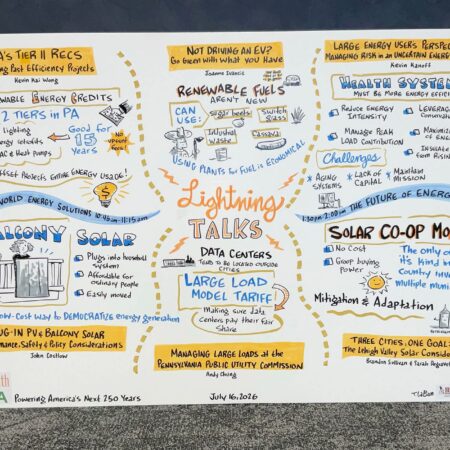 A'S TIER II RECS
ing Past Efficiency Projects
Kevin Kai Wong
WABLE ENERGY CREDITS
2 TIERS in PA
Lighting
ergy retrofits
AC & Heat Pumps
Good for
15
YEARS
NO
UPFRONT
FEES!
OFFSET PROJECTS ENTIRE ENERGY USAGE!
WORLD ENERGY SOLUTIONS 10:45 am-11:15 am
ALCONY SOLAR
Plugs into household
system
Affordable for
ordinary people
Easily moved
Low-Cost Way to DEMOCRATIZE energy generation
UG-IN PV & BALCONY SOLAR
mance, Safety & Policy Considerations
John Costlow
Powering America's Next 250 Years
NOT DRIVING AN EV?
Go Green with what you Have
Joanne Ivancic
RENEWABLE FUELS
AREN'T NEW
CAN
USE:
Sugar beets
Switch
grass
Industrial
Waste
Cassava
USING PLANTS for FUEL is ECONOMICAL
Lightning
TALKS
DATA CENTERS
TEND TO BE LOCATED OUTSIDE
CITIES
LARGE LOAD
MODEL TARIFF
Making sure data
centers pay their fair
share
MANAGING LARGE LOADS at the
PENNSYLVANIA PUBLIC UTILITY COMMISSION
Andy Chung
July 16, 2026
LARGE ENERGY USERS PERSPE
MANAGING RISK in an UNCERTAIN ENERG
Kevin Kanoff
HEALTH SYSTEM
MUST BE MORE ENERGY EFFICI
REDUCE ENERGY
INTENSITY
MANAGE PEAK
LOAD CONTRIBUTION
LEVERAG
CONSERVA
MAXIMIZE
of ENE
INSULATE
from RISIN
Challenges
AGING
SYSTEMS
LACK of
CAPITAL
MAINTAIN
MISSION
1:30 pm-2:00 pm THE FUTURE OF ENERGY
SOLAR CO-OP MO
No Cost
Group buying
power
The only o
it's kind in
Country invol
multiple muni
Mitigation & Adaptation
THREE CITIES, ONE GOAL:
The Lehigh Valley Solar Consider